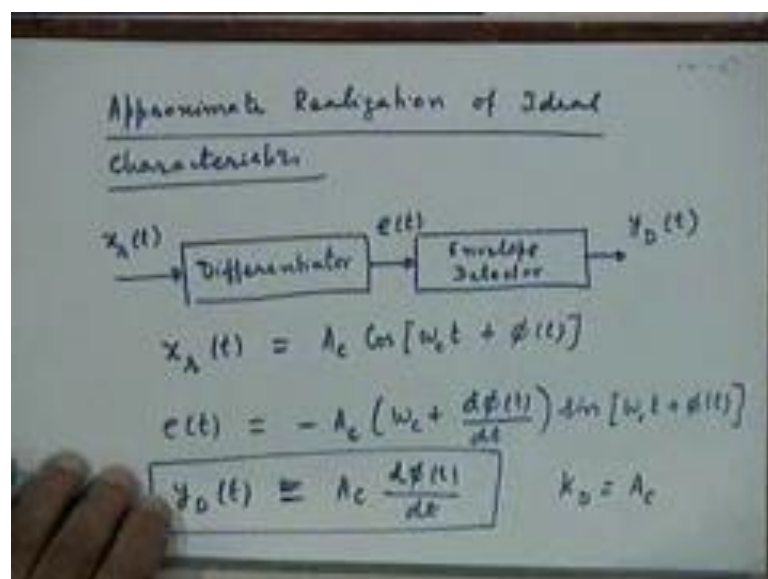 Approximate Realization of Ideal
Characteristics
x_r(t) e(t) y_D(t)
Differentiator Envelope
Detector
x_r(t) = A_c Cos[ω_c t + φ(t)]
e(t) = - A_c (ω_c + dφ(t)/dt) sin [ω_c t + φ(t)]
y_D(t) ≅ A_c dφ(t)/dt K_D = A_c